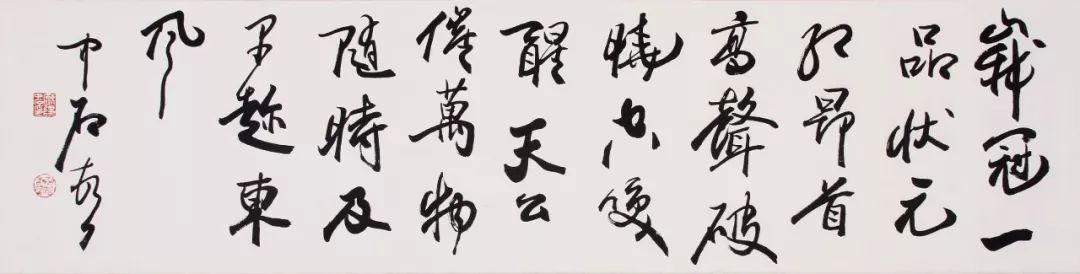 峩冠一
品状元
紅昂首
高聲破
曉空喚
醒天公
催萬物
隨時及
早趁東
風
中石